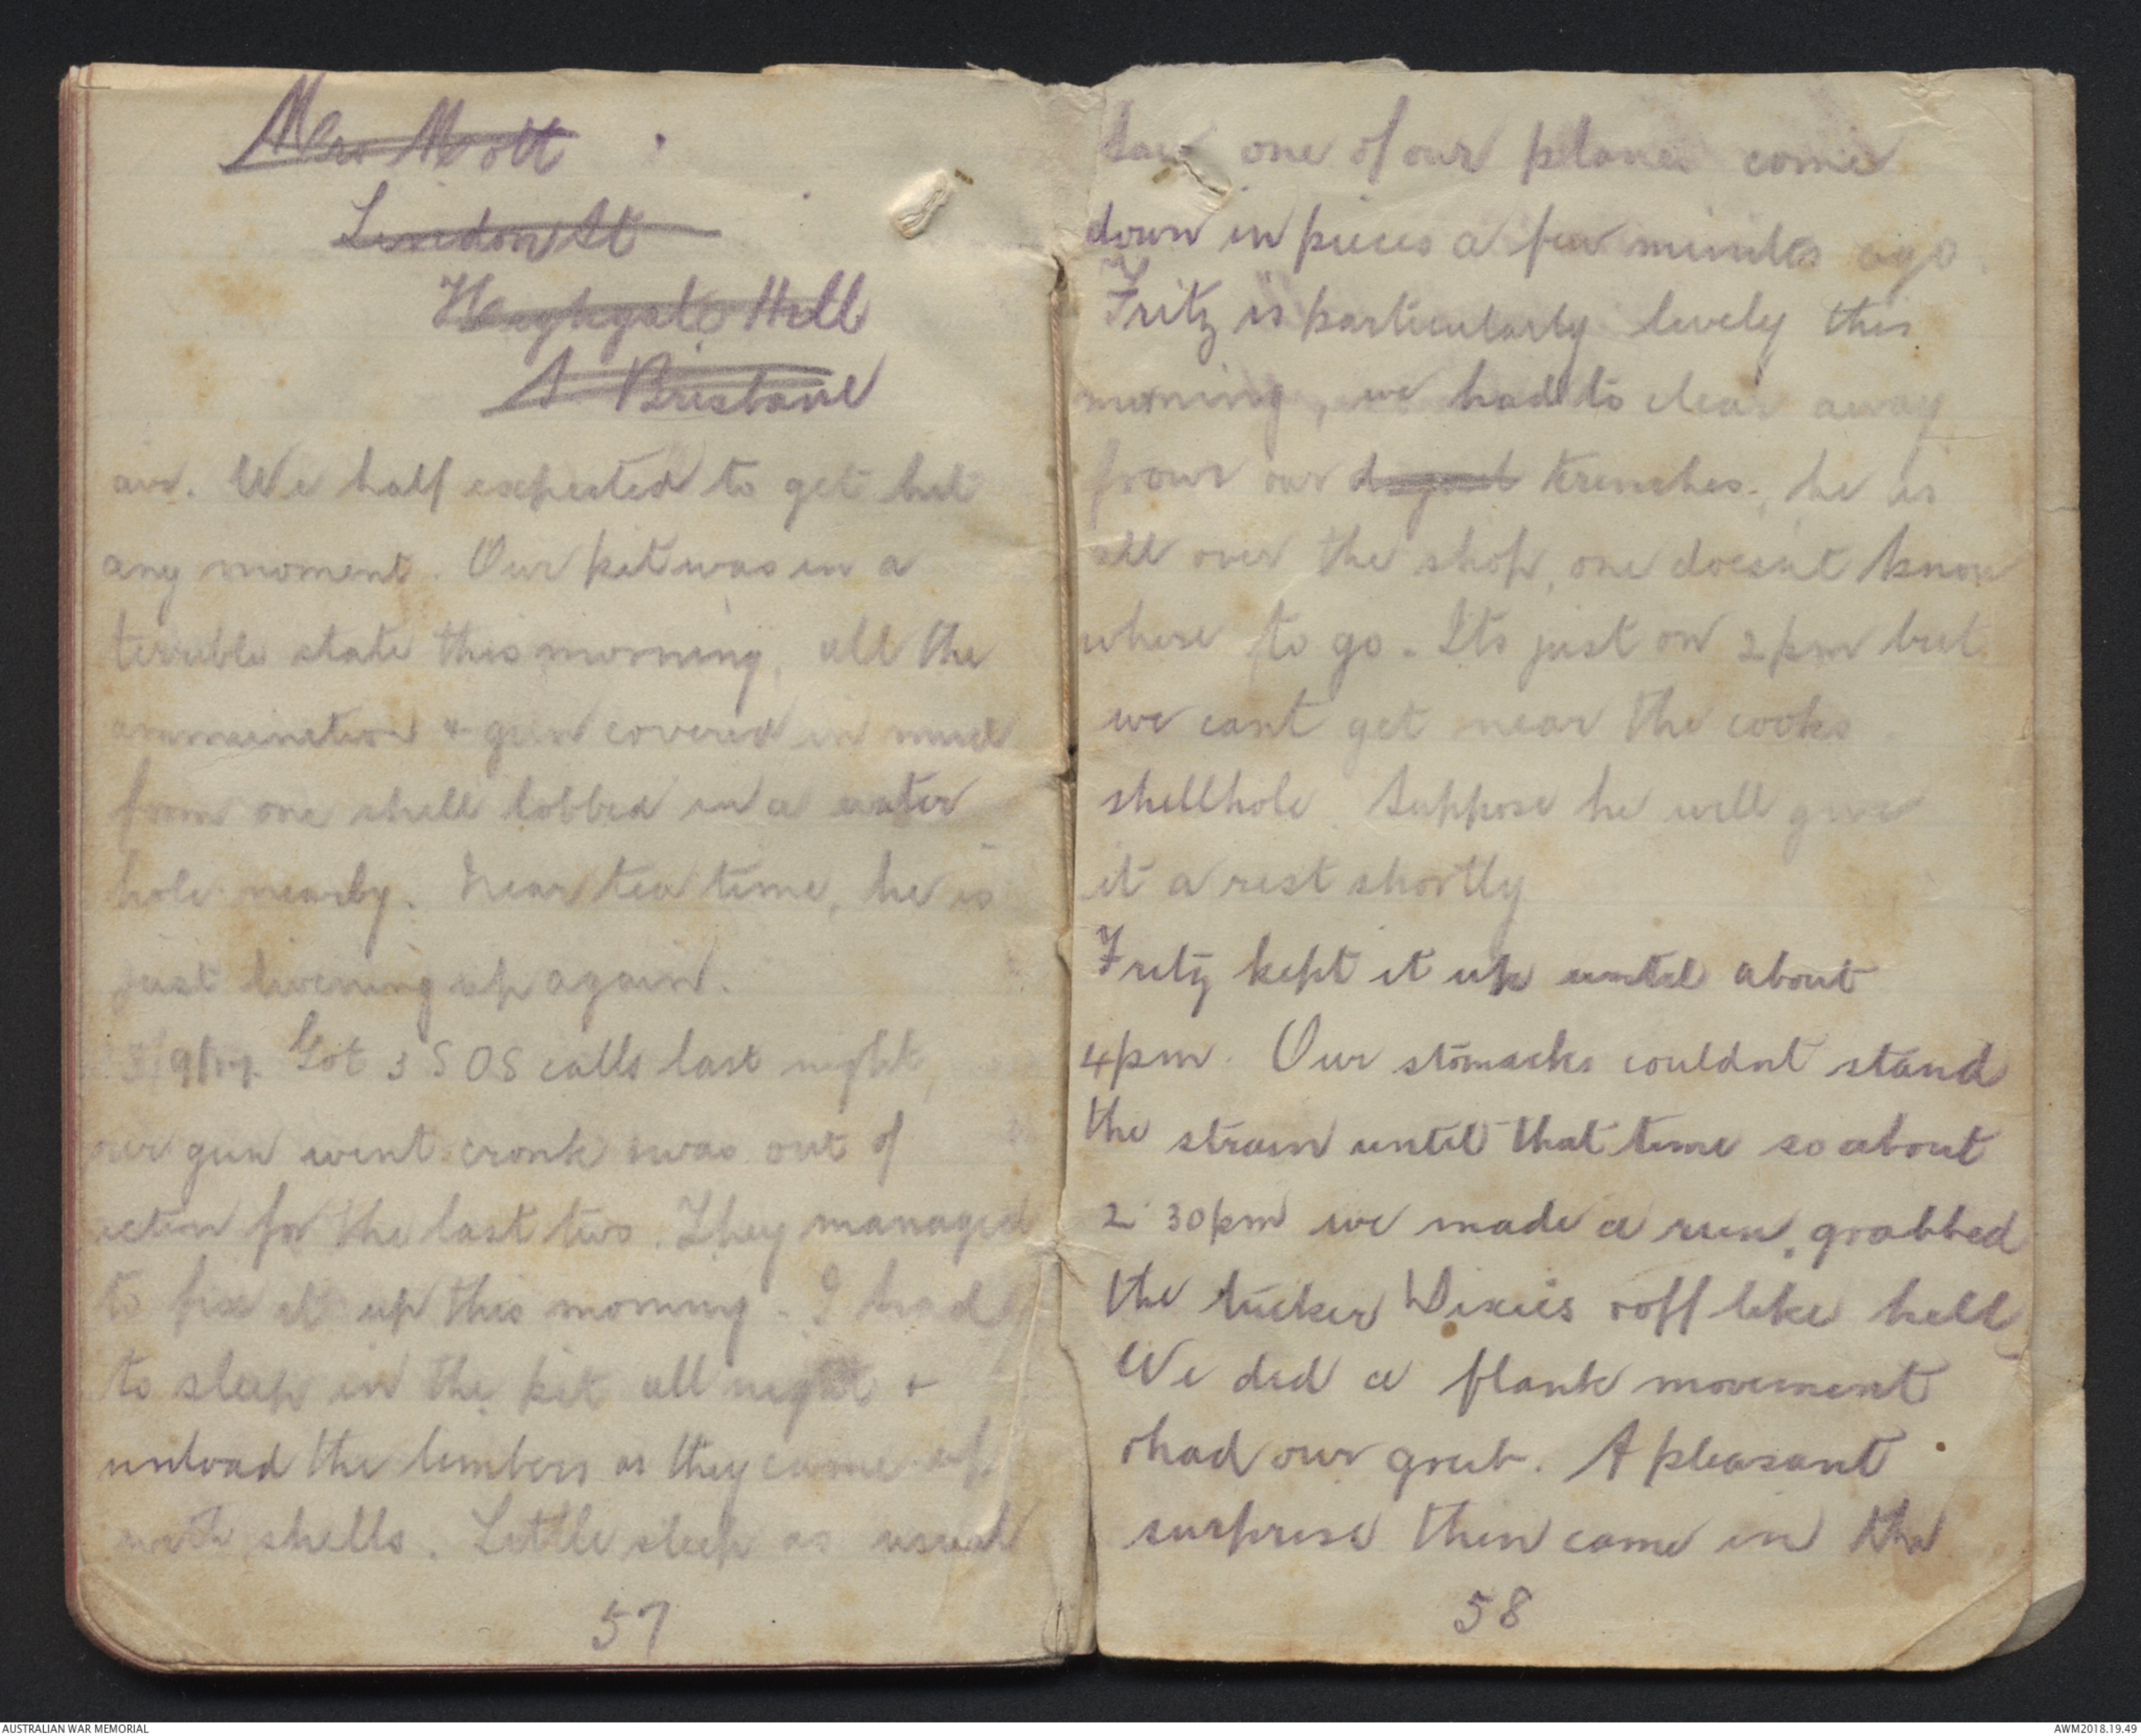 Mrs Mott
London St
Heighgate Hill
S. Brisbane
air. We half expected to get hit
any moment. Our pit was in a
terrible state this morning, all the
ammunition & gun covered in mud
from one shell lobbed in a water
hole nearby. Near tea time, he is
just livening up again.
/9/17. Got 3 S O S calls last night,
our gun went cronk & was out of
action for the last two. They managed
to fix it up this morning. I had
to sleep in the pit all night &
unload the limbers as they came up
with shells. Little sleep as usual
57
Saw one of our planes come
down in pieces a few minutes ago.
Fritz is particularly lively this
morning, we had to clear away
from our trenches, he is
all over the shop, one doesnt know
where to go. Its just on 2 pm but
we cant get near the cooks
shellhole. Suppose he will give
it a rest shortly
Fritz kept it up until about
4 pm. Our stomachs couldnt stand
the strain until that time so about
2.30 pm we made a run, grabbed
the tucker Dixies & off like hell
We did a flank movement
& had our grub. A pleasant
surprise then came in the
58
AUSTRALIAN WAR MEMORIAL
AWM2018.19.49